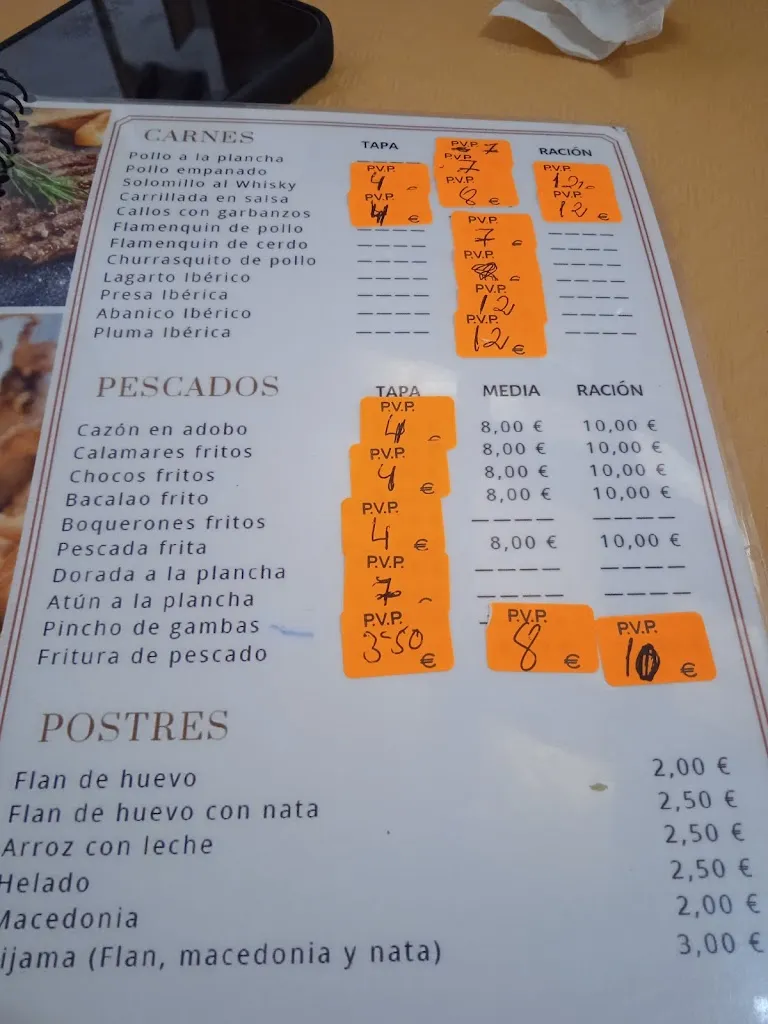 CARNES TAPA P.V.P. 7 RACIÓN
Pollo a la plancha ----
Pollo empanado P.V.P. 7
Solomillo al Whisky P.V.P. 4 P.V.P. 8 € P.V.P. 12
Carrillada en salsa P.V.P. 4 € P.V.P. 12 €
Callos con garbanzos
Flamenquin de pollo ---- P.V.P. 7 ----
Flamenquin de cerdo ---- ----
Churrasquito de pollo ---- P.V.P. ----
Lagarto Ibérico ---- ----
Presa Ibérica ---- P.V.P. 12 ----
Abanico Ibérico ---- P.V.P. 12 € ----
Pluma Ibérica ---- ----
PESCADOS TAPA MEDIA RACIÓN
Cazón en adobo P.V.P. 4 8,00 € 10,00 €
Calamares fritos 8,00 € 10,00 €
Chocos fritos P.V.P. 4 € 8,00 € 10,00 €
Bacalao frito 8,00 € 10,00 €
Boquerones fritos P.V.P. 4 € ---- ----
Pescada frita 8,00 € 10,00 €
Dorada a la plancha P.V.P. 7 ---- ----
Atún a la plancha ---- ----
Pincho de gambas P.V.P. 3'50 € P.V.P. 8 € P.V.P. 10 €
Fritura de pescado
POSTRES
Flan de huevo 2,00 €
Flan de huevo con nata 2,50 €
Arroz con leche 2,50 €
Helado 2,50 €
Macedonia 2,00 €
ijama (Flan, macedonia y nata) 3,00 €